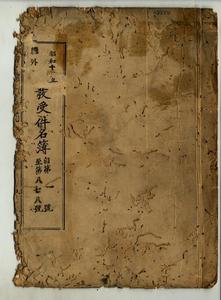 昭和十五
號外
發受件名簿
自第一號
至第八七八號